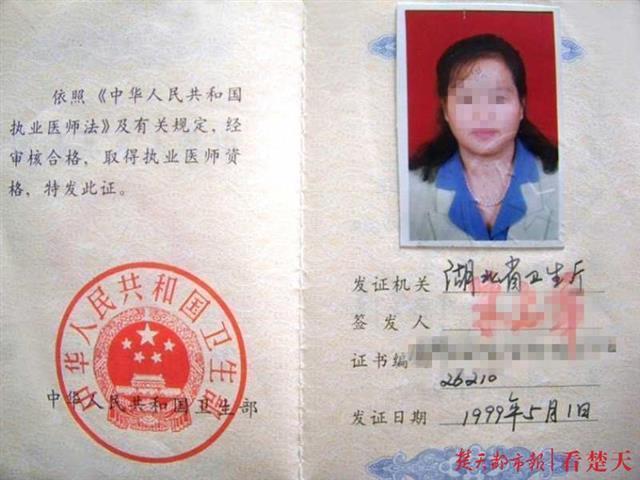 依照《中华人民共和国
执业医师法》及有关规定，经
审核合格，取得执业医师资
格，特发此证。
中华人民共和国卫生部
中华人民共和国卫生部
发证机关 湖北省卫生厅
签发人
证书编
26210
发证日期 1999年5月1日
楚天都市报 看楚天